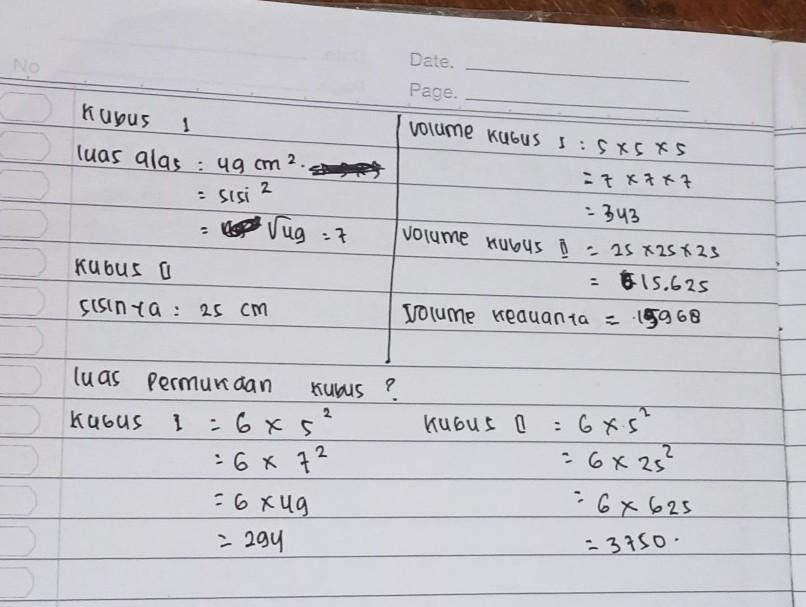 No
Date.
Page.
Kubus I
luas alas : 49 cm².
= sisi²
= √49 = 7
Kubus II
sisinya : 25 cm
Volume Kubus I : s x s x s
= 7 x 7 x 7
= 343
Volume Kubus II = 25 x 25 x 25
= 15.625
Volume keduanya = 15968
luas permukaan kubus ?
Kubus I = 6 x s²
= 6 x 7²
= 6 x 49
= 294
Kubus II = 6 x s²
= 6 x 25²
= 6 x 625
= 3750.